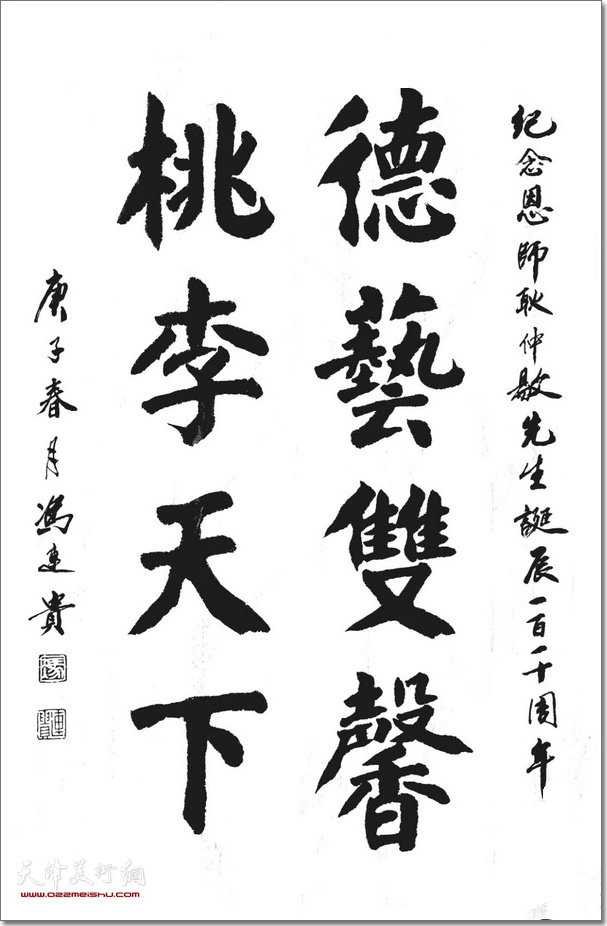 紀念恩師耿仲敭先生誕辰一百一十周年
德藝雙馨
桃李天下
庚子春月馮連貴
天津美術網
www.022meishu.com